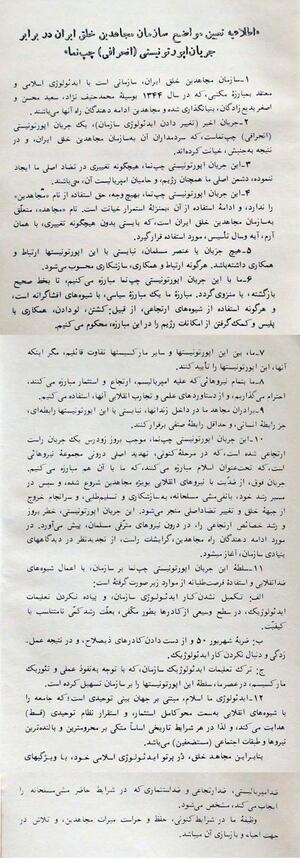 «اطلاعیه تعیین مواضع سازمان مجاهدین خلق ایران در برابر
جریان اپورتونیستی (انحرافی) چپ‌نما»
۱-سازمان مجاهدین خلق ایران، سازمانی است با ایدئولوژی اسلامی و
معتقد بمبارزه مکتبی، که در سال ۱۳۴۴ بوسیله محمدحنیف نژاد، سعید محسن و
اصغر بدیع‌زادگان، بنیانگذاری شده و مجاهدین ادامه دهندگان راه آنها می‌باشند.
۲-جریان اخیر (تغییر دادن ایدئولوژی سازمان)، یک جریان اپورتونیستی
(انحرافی) چپ‌نماست، که سردمداران آن به‌سازمان مجاهدین خلق ایران، و در
نتیجه به‌جنبش، خیانت کرده‌اند.
۳-این جریان اپورتونیستی چپ‌نما، هیچگونه تغییری در تضاد اصلی ما ایجاد
ننموده، دشمن اصلی ما همچنان رژیم، و حامیان امپریالیست آن، می‌باشند.
۴-این جریان اپورتونیستی چپ‌نما، بهیچ وجه، حق استفاده از نام «مجاهدین»
را ندارد، و ادامهٔ استفاده از آن، بمنزلهٔ استمرار خیانت است. نام «مجاهد»، متعلق
به‌سازمان مجاهدین خلق ایران است، که بایستی بدون هیچگونه تغییری، با همان
آرم، آیه وسال تأسیس، مورد استفاده قرارگیرد.
۵-هیچ جزیان یا عنصر مسلمان، نبایستی با این اپورتونیستها ارتباط و
همکاری داشته‌باشد. هرگونه ارتباط و همکاری، سازشکاری محسوب می‌شود.
۶-ما با این جریان اپورتونیستی چپ‌نما مبارزه می‌کنیم، تا بخط صحیح
بازگشته، یا منزوی گردد. مبارزهٔ ما یک مبارزهٔ سیاسی، با شیوه‌های افشاگرانه است،
و هرگونه استفاده از شیوه‌های ارتجاعی، از قبیل: کشتن، لودادن، همکاری با
پلیس و کمک‌گرفتن از امکانات رژیم را در این مبارزه، محکوم می‌کنیم.
۷-ما، بین این اپورتونیستها و سایر مارکسیستها تفاوت قائلیم، مگر اینکه
آنها، این اپورتونیستها را تأیید کنند.
۸-ما بتمام نیروهائی که علیه امپریالیسم، ارتجاع و استثمار مبارزه می‌کنند،
احترام می‌گذاریم، و از دستاوردهای علمی و تجارب انقلابی آنها، استفاده می‌کنیم.
۹-برادران مجاهد ما در داخل زندانها، نبایستی با این اپورتونیستها رابطه‌ای،
جز رابطهٔ انسانی، و حداقل رابطهٔ صنفی برقرار کنند.
۱۰-این جریان اپورتونیستی چپ‌نما، موجب بروز زودرس یک جریان راست
ارتجاعی شده است، که در مرحلهٔ کنونی، تهدید اصلی درونی مجموعهٔ نیروهائی
است، که تحت‌عنوان اسلام مبارزه می‌کنند، که ما با آن هم مبارزه می‌کنیم.
جریان فوق، از ضدّیت با نیروهای انقلابی بویژه مجاهدین شروع شده، و سپس در
مسیر رشد خود، بانفی‌مشی مسلحانه، به‌سازشکاری و تسلیم‌طلبی، و سرانجام خروج
از جبههٔ خلق و تغییر تضاداصلی منجر می‌شود. این جریان اپورتونیستی، خطر بروز
و رشد خصائص ارتجاعی را، در درون نیروهای مترقی مسلمان، پیش می‌آورد. در
مورد ادامه دهندگان راه مجاهدین، گرایشات راست، از تجدیدنظر در دیدگاههای
بنیادی سازمان، آغاز میشود.
۱۱-سلطهٔ این جریان اپورتونیستی چپ‌نما بر سازمان، با اعمال شیوه‌های
ضدانقلابی و استفادهٔ فرصت‌طلبانه از موارد زیر صورت‌گرفته است:
الف: تکمیل نشدن کار ایدئولوژی سازمان، و پیاده نکردن تعلیمات
ایدئولوژیک، در سطح وسیعی ازکادرها بطور مکّفی، بعلّت رشدکمّی نامتناسب با
کیفیّت.
ب: ضربهٔ شهریور ۵۰ و از دست دادن کادرهای ذیصلاح، و در نتیجه عمل-
زدگی و دنبال نکردن کار ایدئولوژیک.
ج: ترک تعلیمات ایدئولوژیک سازمان، که با توجه به‌نفوذ عملی و تئوریک
مارکسیسم، درعصرما، سلطهٔ این اپورتونیستها را برسازمان تسهیل کرده است.
۱۲-ایدئولوژی ما اسلام، مبتنی بر جهان بینی توحیدی است، که جامعه را
با شیوه‌های انقلابی به‌سمت محوکامل استثمار، و استقرار نظام توحیدی (قسط)
هدایت می‌کند، و لذا در هر شرایط تاریخی اساساً متکی بر محروم‌ترین و بالنده‌ترین
نیروها و طبقات اجتماعی (مستضعفین) می‌باشد.
بنابراین مجاهد خلق، در پرتو ایدئولوژی اسلامی خود، با ویژگیهای
ضدامپریالیستی، ضدارتجاعی و ضداستثماری که در شرایط حاضر مشی‌مسلحانه را
ایجاب می‌کند، مشخص می‌شود.
وظیفهٔ ما در شرایط‌کنونی، حفظ و حراست میراث مجاهدین، و تلاش در
جهت احیاء و بازسازی آن میباشد.